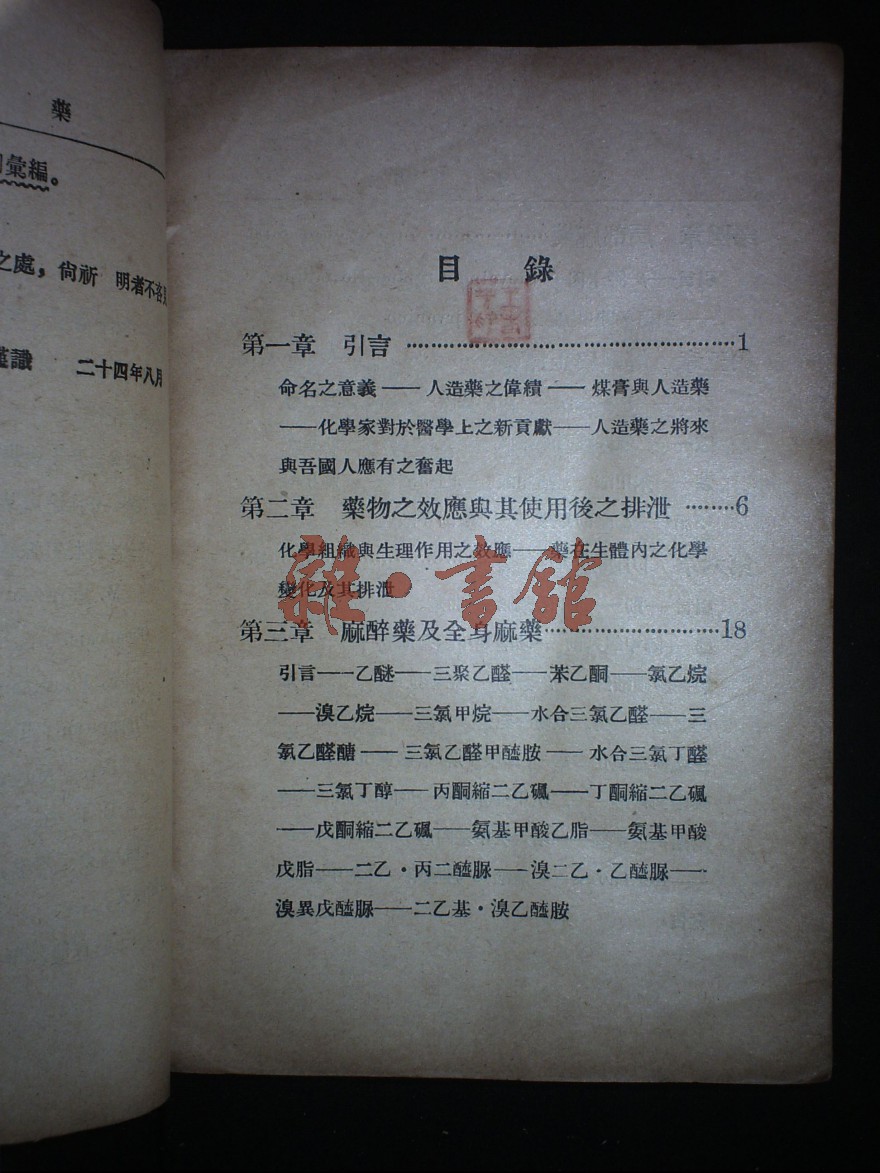 藥
彙編。
之處，尙祈　明者不吝
謹識　二十四年八月
目　錄
第一章　引言 ……………………………………1
命名之意義——人造藥之偉績——煤膏與人造藥
——化學家對於醫學上之新貢獻——人造藥之將來
與吾國人應有之奮起
第二章　藥物之效應與其使用後之排泄 ………6
化學組織與生理作用之效應——藥在生體內之化學
變化及其排泄
雜·書館
第三章　麻醉藥及全身麻藥……………………18
引言——乙醚——三聚乙醛——苯乙酮——氯乙烷
——溴乙烷——三氯甲烷——水合三氯乙醛——三
氯乙醛醣——三氯乙醛甲醯胺——水合三氯丁醛
——三氯丁醇——丙酮縮二乙碸——丁酮縮二乙碸
——戊酮縮二乙碸——氨基甲酸乙脂——氨基甲酸
戊脂——二乙·丙二醯脲——溴二乙·乙醯脲——
溴異戊醯脲——二乙基·溴乙醯胺